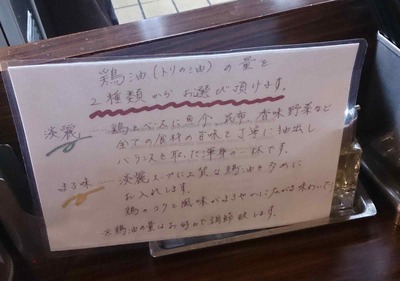 鶏油(トリの油)の量を
2種類からお選び頂けます。
淡麗 — 鶏ベースに魚介、昆布、香味野菜など
全ての食材の旨味を丁寧に抽出し
バランスを取った渾身の一杯です。
まろ味 — 淡麗スープに上質な鶏油を多めに
お入れします。
鶏のコクと風味がまろやかに広がる味わいです。
※鶏油の量はお好みで調節致します。